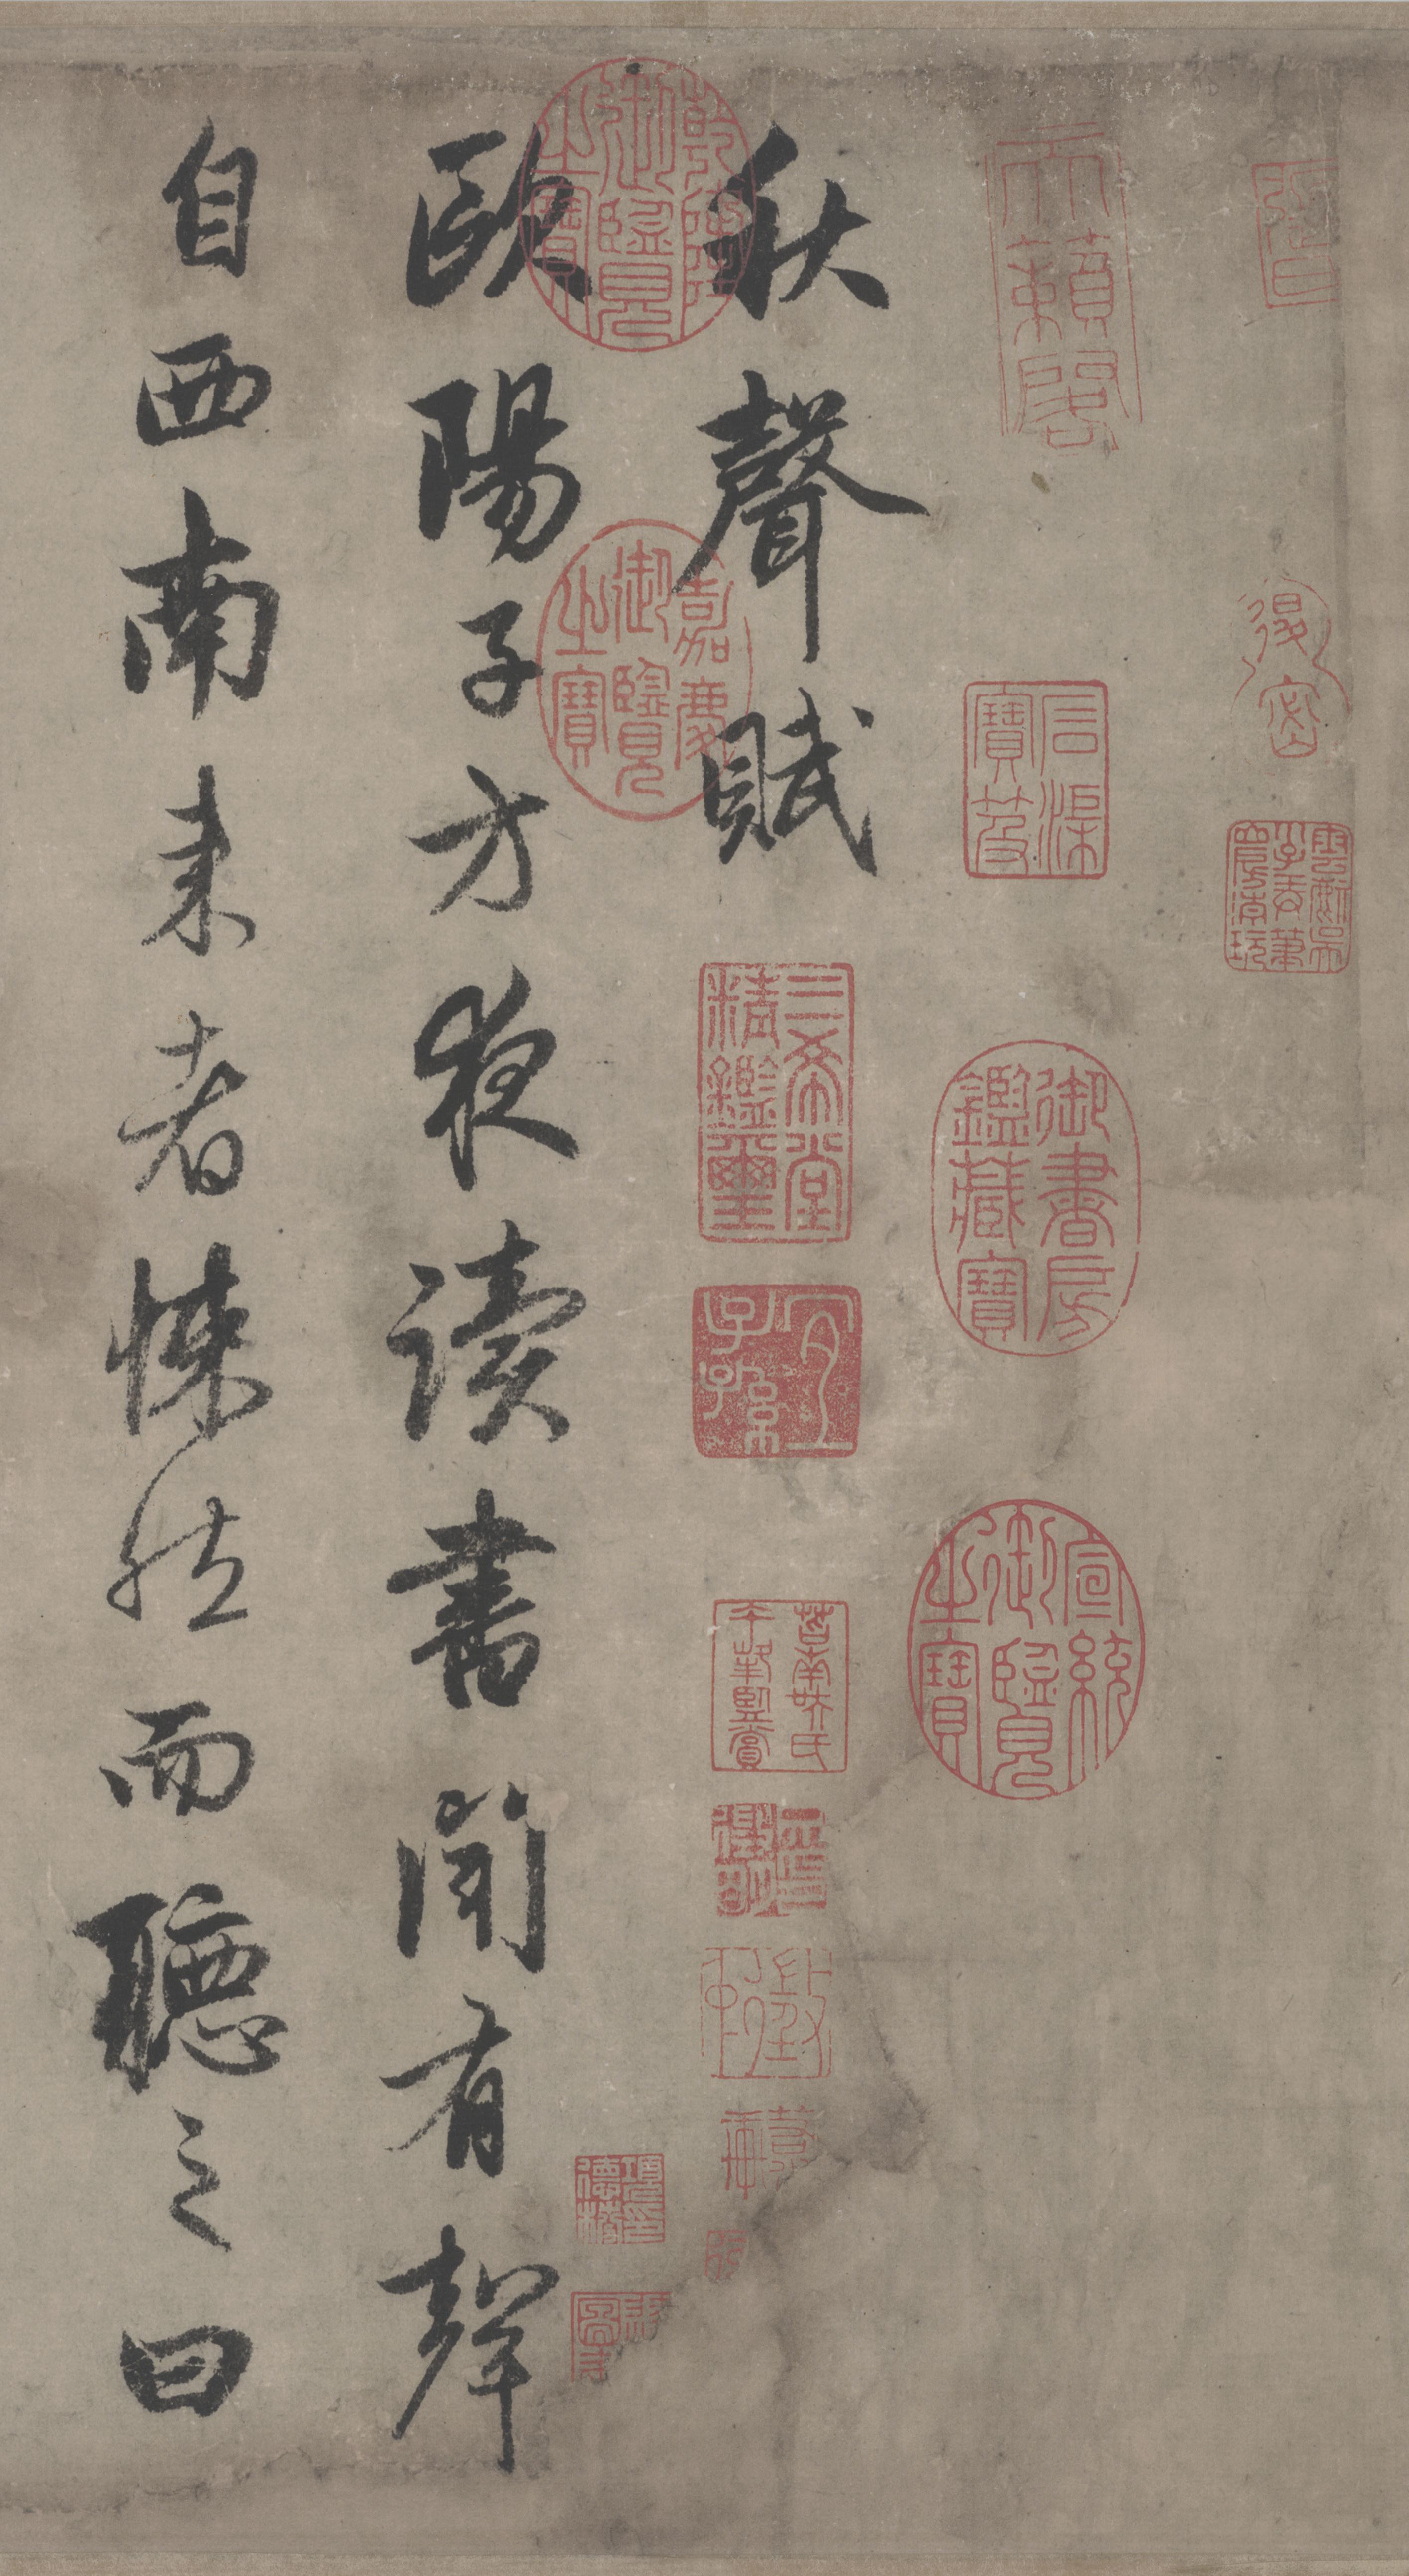 秋聲賦
歐陽子方夜讀書聞有聲
自西南来者悚然而聽之曰
天籟閣
石渠寶笈
御書房鑑藏寶
宣統御覽之寶
乾隆御覽之寶
嘉慶御覽之寶
三希堂精鑑璽
宜子孫